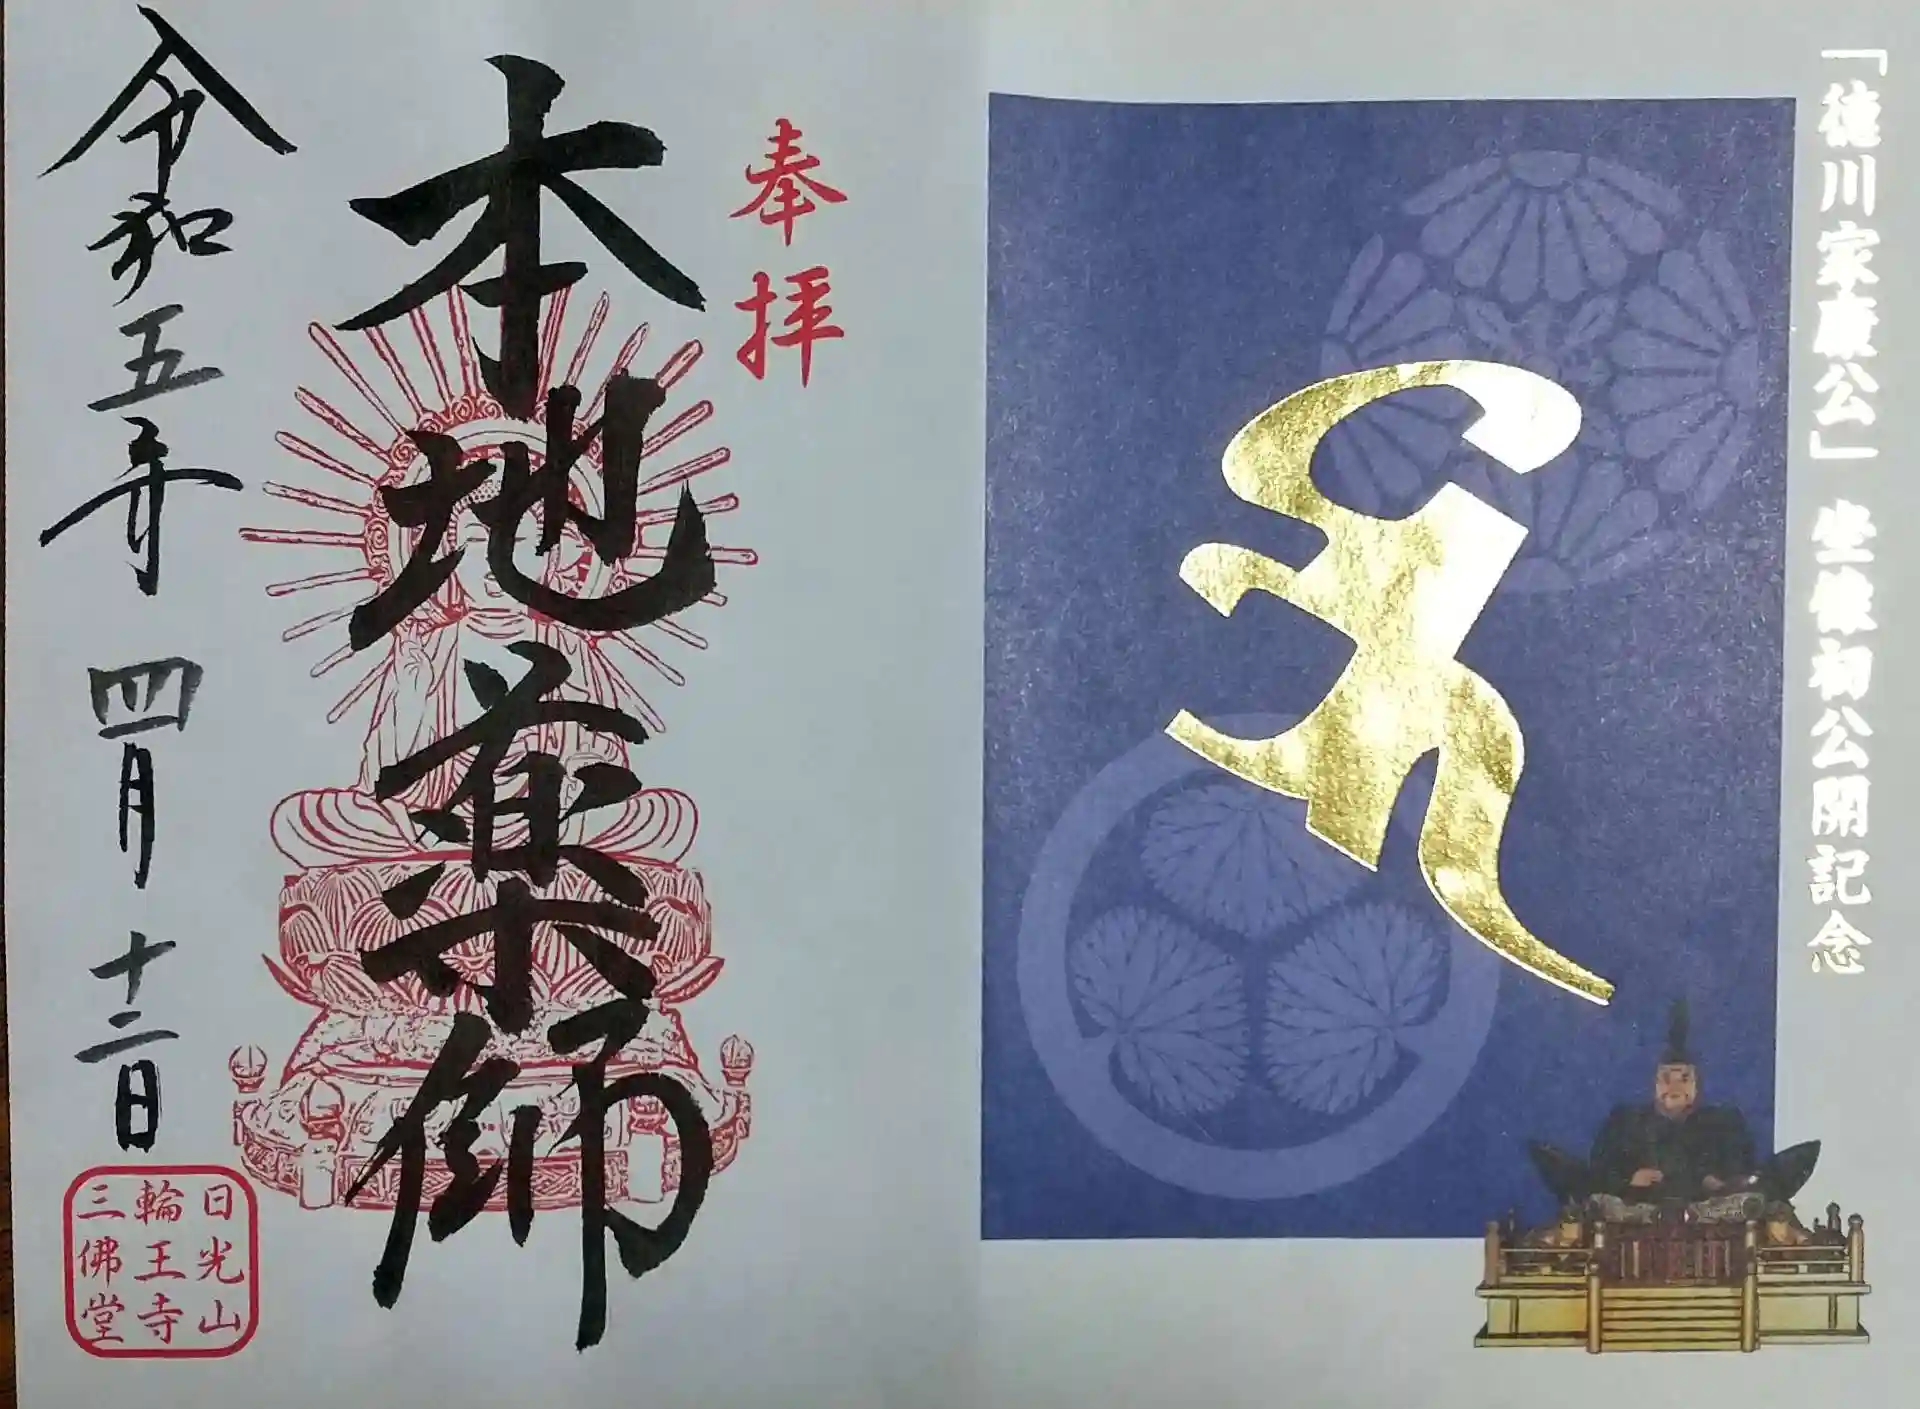 「徳川家康公」坐像初公開記念
奉拝
本地薬師
令和五年 四月 十二日
日光山
輪王寺
三佛堂